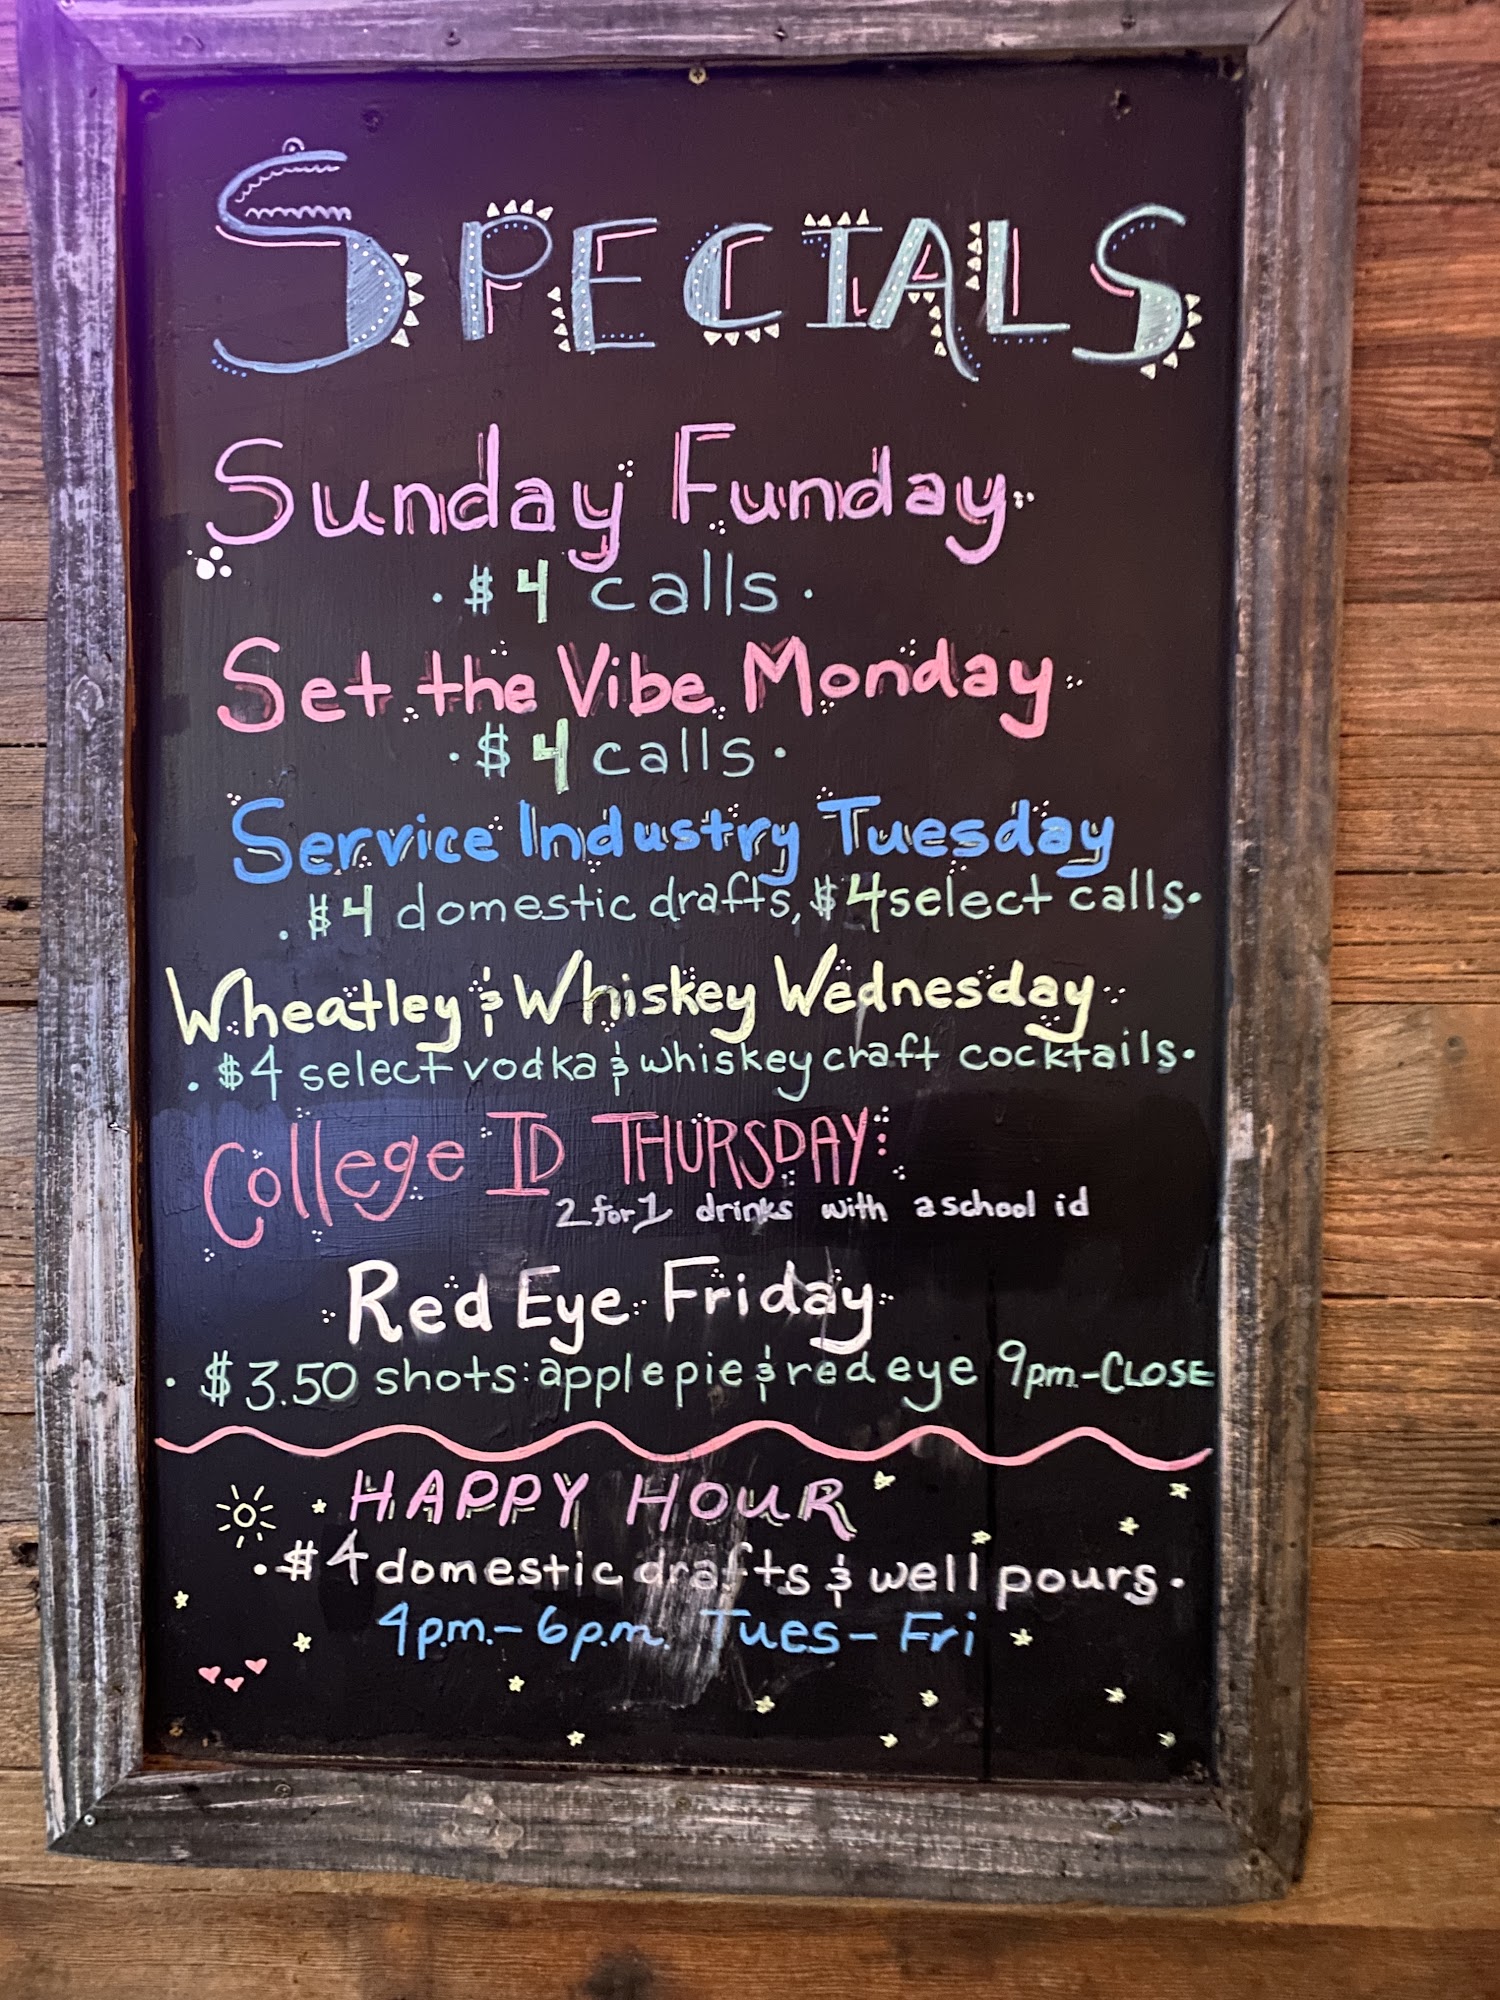 SPECIALS
Sunday Funday
· $4 calls ·
Set the Vibe Monday
· $4 calls ·
Service Industry Tuesday
· $4 domestic drafts, $4 select calls ·
Wheatley & Whiskey Wednesday
· $4 select vodka & whiskey craft cocktails ·
College ID THURSDAY:
2 for 1 drinks with a school id
Red Eye Friday
· $3.50 shots: apple pie & red eye 9pm-CLOSE
HAPPY HOUR
· $4 domestic drafts & well pours ·
4p.m.-6p.m. Tues-Fri